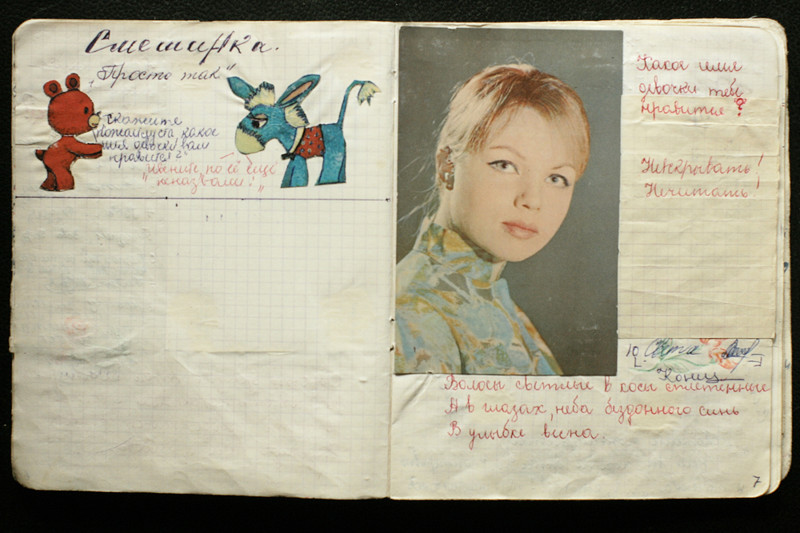 Смешинка.
„Просто так"
Скажите
пожалуйста какое
имя девочки вам
нравится?
её ещё
неназвали!"
Какое имя
девочки тебе
нравится?
Неоткрывать!
Нечитать.
10 Света
Конец
Волосы светлые в косы сплетенные
А в глазах, неба бездонного синь
В улыбке весна.
7